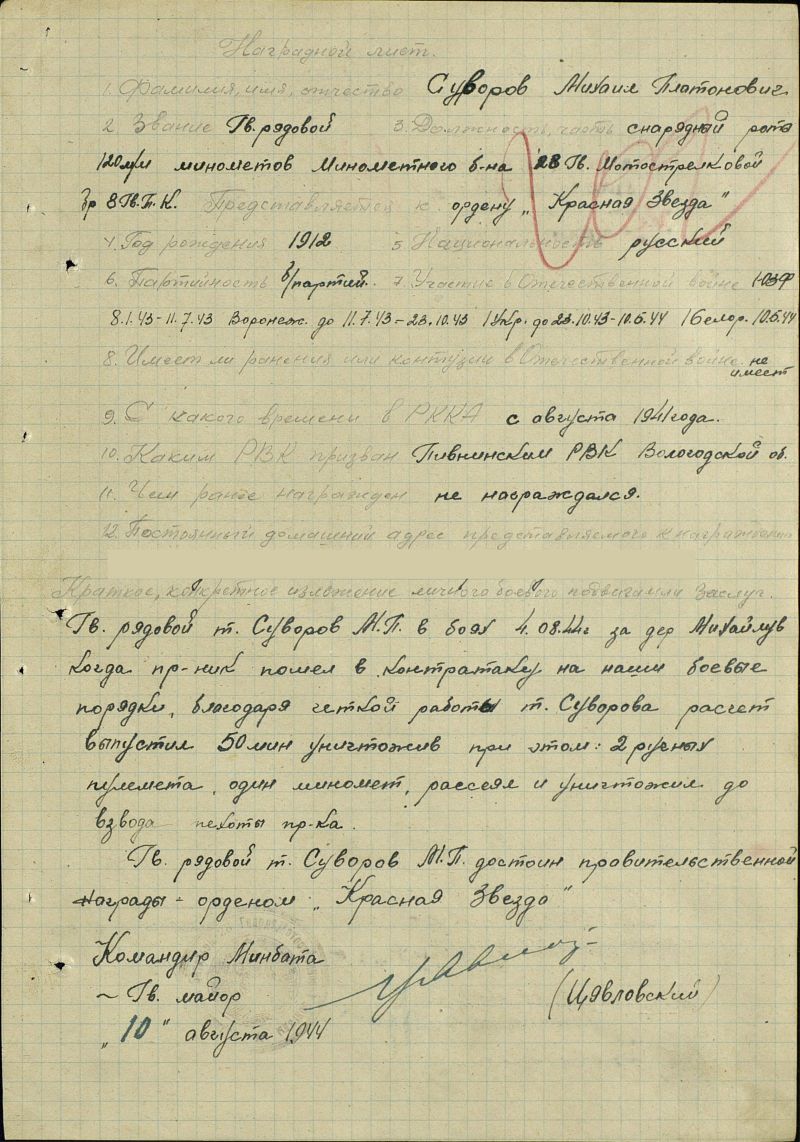 Наградной лист.
1. Фамилия, имя, отчество Суворов Михаил Платонович
2. Звание Гв. рядовой 3. Должность, часть снарядный роты
120 м/м минометов Минометного б-на 28 Гв. Мотострелковой
бр 8 Гв.Т.К. Представляется к ордену „Красная Звезда"
4. Год рождения 1912 5. Национальность русский
6. Партийность б/партий. 7. Участие в Отечественной войне
8.1.43-11.7.43 Воронеж. до 11.7.43-23.10.43 1 Укр. до 23.10.43-10.5.44 1 Белор. 10.5.44
8. Имеет ли ранения или контузии в Отечественной войне не
имеет
9. С какого времени в РККА с августа 1941 года.
10. Каким РВК призван РВК Вологодской об.
11. Чем ранее награжден не награждался.
12. Постоянный домашний адрес представляемого к награждению
Краткое, конкретное изложение личного боевого подвига или заслуг.
Гв. рядовой т. Суворов М.П. в боях 4.08.44г за дер Михайлув
когда пр-ник пошел в контратаку на наши боевые
порядки, благодаря четкой работы т. Суворова расчет
выпустил 50 мин уничтожив при этом: 2 ручных
пулемета, один миномет, рассеял и уничтожил до
взвода пехоты пр-ка.
Гв. рядовой т. Суворов М.П. достоин правительственной
награды - орденом „Красная Звезда"
Командир Минбата
~ Гв. майор (Цявловский)
„10" августа 1944